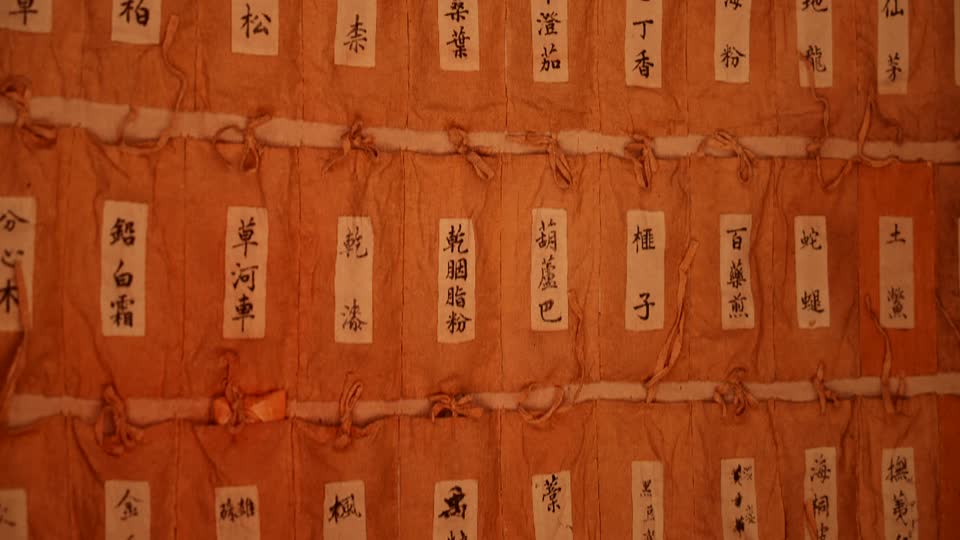 草
柏
松
柰
桑葉
澄茄
丁香
粉
地龍
仙茅
分心木
鉛白霜
草河車
乾漆
乾胭脂粉
葫蘆巴
榧子
百藥煎
蛇蜕
土鱉
金
雄
楓
藁
黑豆
海桐皮
撫芎